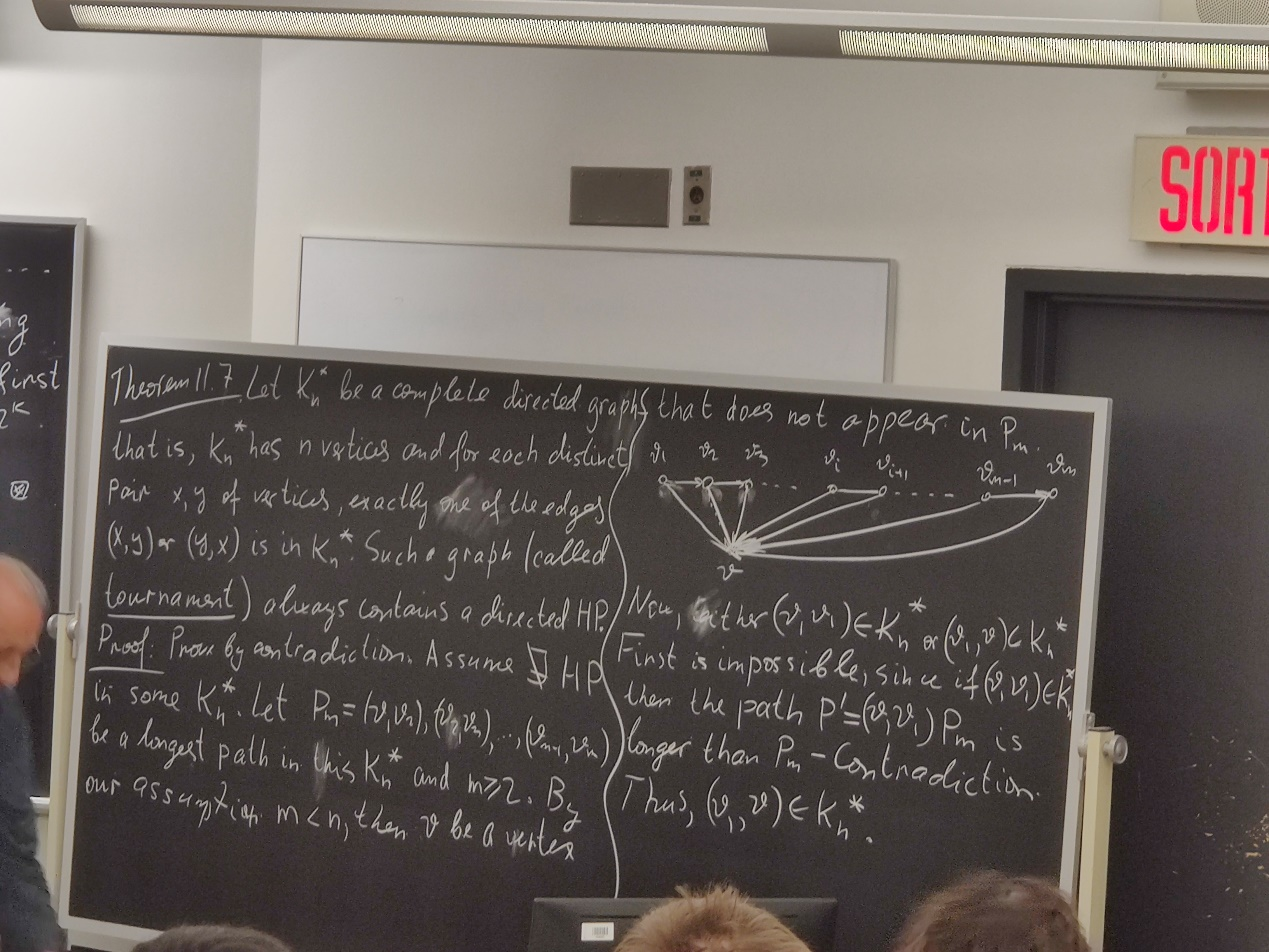 ng
first
2^K
SORT
Theorem 11.7 Let K_n^* be a complete directed graph,
that is, K_n^* has n vertices and for each distinct
pair x,y of vertices, exactly one of the edges
(x,y) or (y,x) is in K_n^*. Such a graph (called
tournament) always contains a directed HP.
Proof: Prove by contradiction. Assume ∄ HP
in some K_n^*. Let P_m = (v_1,v_2), (v_2,v_3),..., (v_{m-1},v_m)
be a longest path in this K_n^* and m ≥ 2. By
our assumption m < n, then v be a vertex
that does not appear in P_m.
v_1 v_2 v_3 v_i v_{i+1} v_{m-1} v_m
v
Now, either (v,v_1) ∈ K_n^* or (v_1,v) ∈ K_n^*
First is impossible, since if (v,v_1) ∈ K_n^*
then the path P' = (v,v_1) P_m is
longer than P_m - Contradiction.
Thus, (v_1,v) ∈ K_n^*.